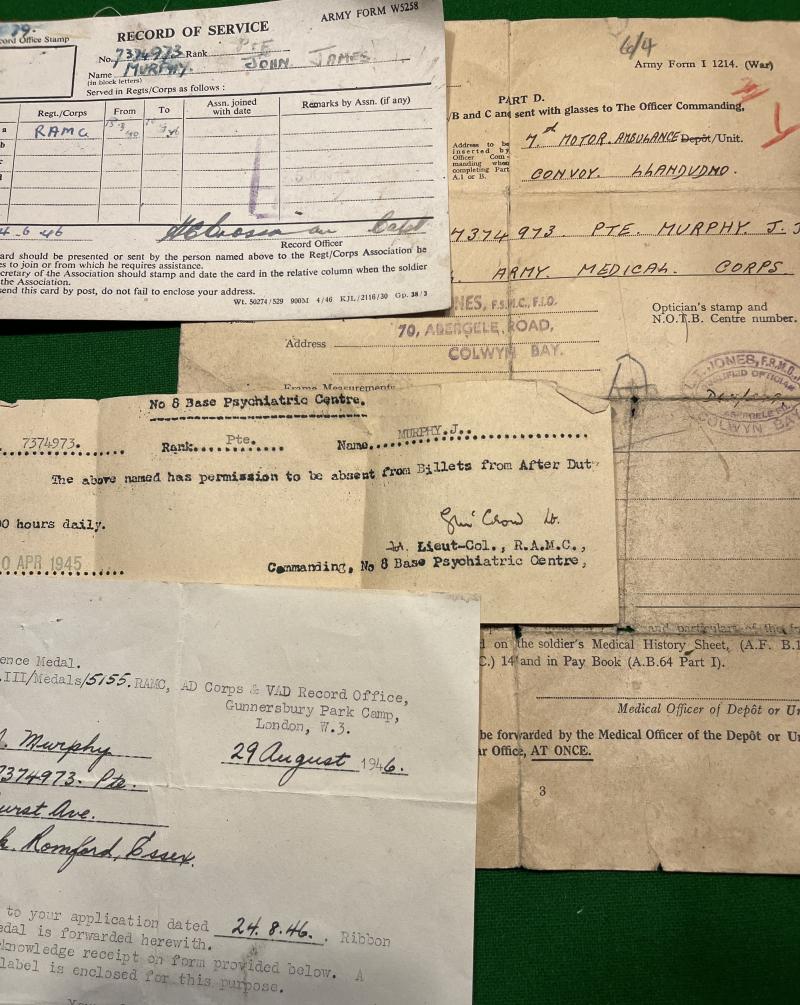 ARMY FORM W5258
cord Office Stamp
RECORD OF SERVICE
No. 7374973 Rank PTE
Name MURPHY. JOHN JAMES
(in block letters)
Served in Regts/Corps as follows :
Regt./Corps From To Assn. joined with date Remarks by Assn. (if any)
a RAMC
b
4.6.46
Capt
Record Officer
ard should be presented or sent by the person named above to the Regt/Corps Association be
es to join or from which he requires assistance.
cretary of the Association should stamp and date the card in the relative column when the soldier
the Association.
send this card by post, do not fail to enclose your address.
Wt. 50274/529 900M 4/46 KJL/2116/30 Gp. 38/3
6/4
Army Form I 1214. (War)
PART D.
/B and C and sent with glasses to The Officer Commanding,
Address to be inserted by Officer Commanding when completing Part A.1 or B.
7th MOTOR. AMBULANCE Depôt/Unit.
CONVOY. LLANDUDNO.
7374973. PTE. MURPHY. J. J
ARMY. MEDICAL. CORPS
NES, F.S.M.C., F.I.O.
Address 70, ABERGELE ROAD,
COLWYN BAY.
Optician's stamp and
N.O.T.B. Centre number.
JONES, F.B.M.C.
OPTICIAN
COLWYN BAY
Frame Measurements
No 8 Base Psychiatric Centre.
7374973. Rank. Pte. Name. MURPHY.J.
The above named has permission to be absent from Billets from After Duty
00 hours daily.
Crow Lt.
Lieut-Col., R.A.M.C.,
0 APR 1945
Commanding, No 8 Base Psychiatric Centre,
and particulars of the
d on the soldier's Medical History Sheet, (A.F. B.1
C.) 14 and in Pay Book (A.B.64 Part I).
Medical Officer of Depôt or Un
be forwarded by the Medical Officer of the Depôt or Un
ar Office, AT ONCE.
3
ence Medal.
.III/Medals/5155. RAMC, AD Corps & VAD Record Office,
Gunnersbury Park Camp,
London, W.3.
29 August 1946.
Murphy
7374973. Pte.
urst Ave.
k. Romford, Essex.
to your application dated 24.8.46. Ribbon
edal is forwarded herewith.
knowledge receipt on form provided below. A
label is enclosed for this purpose.